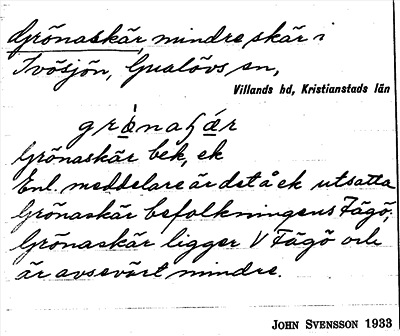 Grönaskär, mindre skär i
Ivösjön, Gualövs sn,
Villands hd, Kristianstads län
Grönaskär bek, ek
Enl. meddelare är det å ek utsatta
Grönaskär befolkningens Fägö,
Grönaskär ligger V Fägö och
är avsevärt mindre.
JOHN SVENSSON 1933